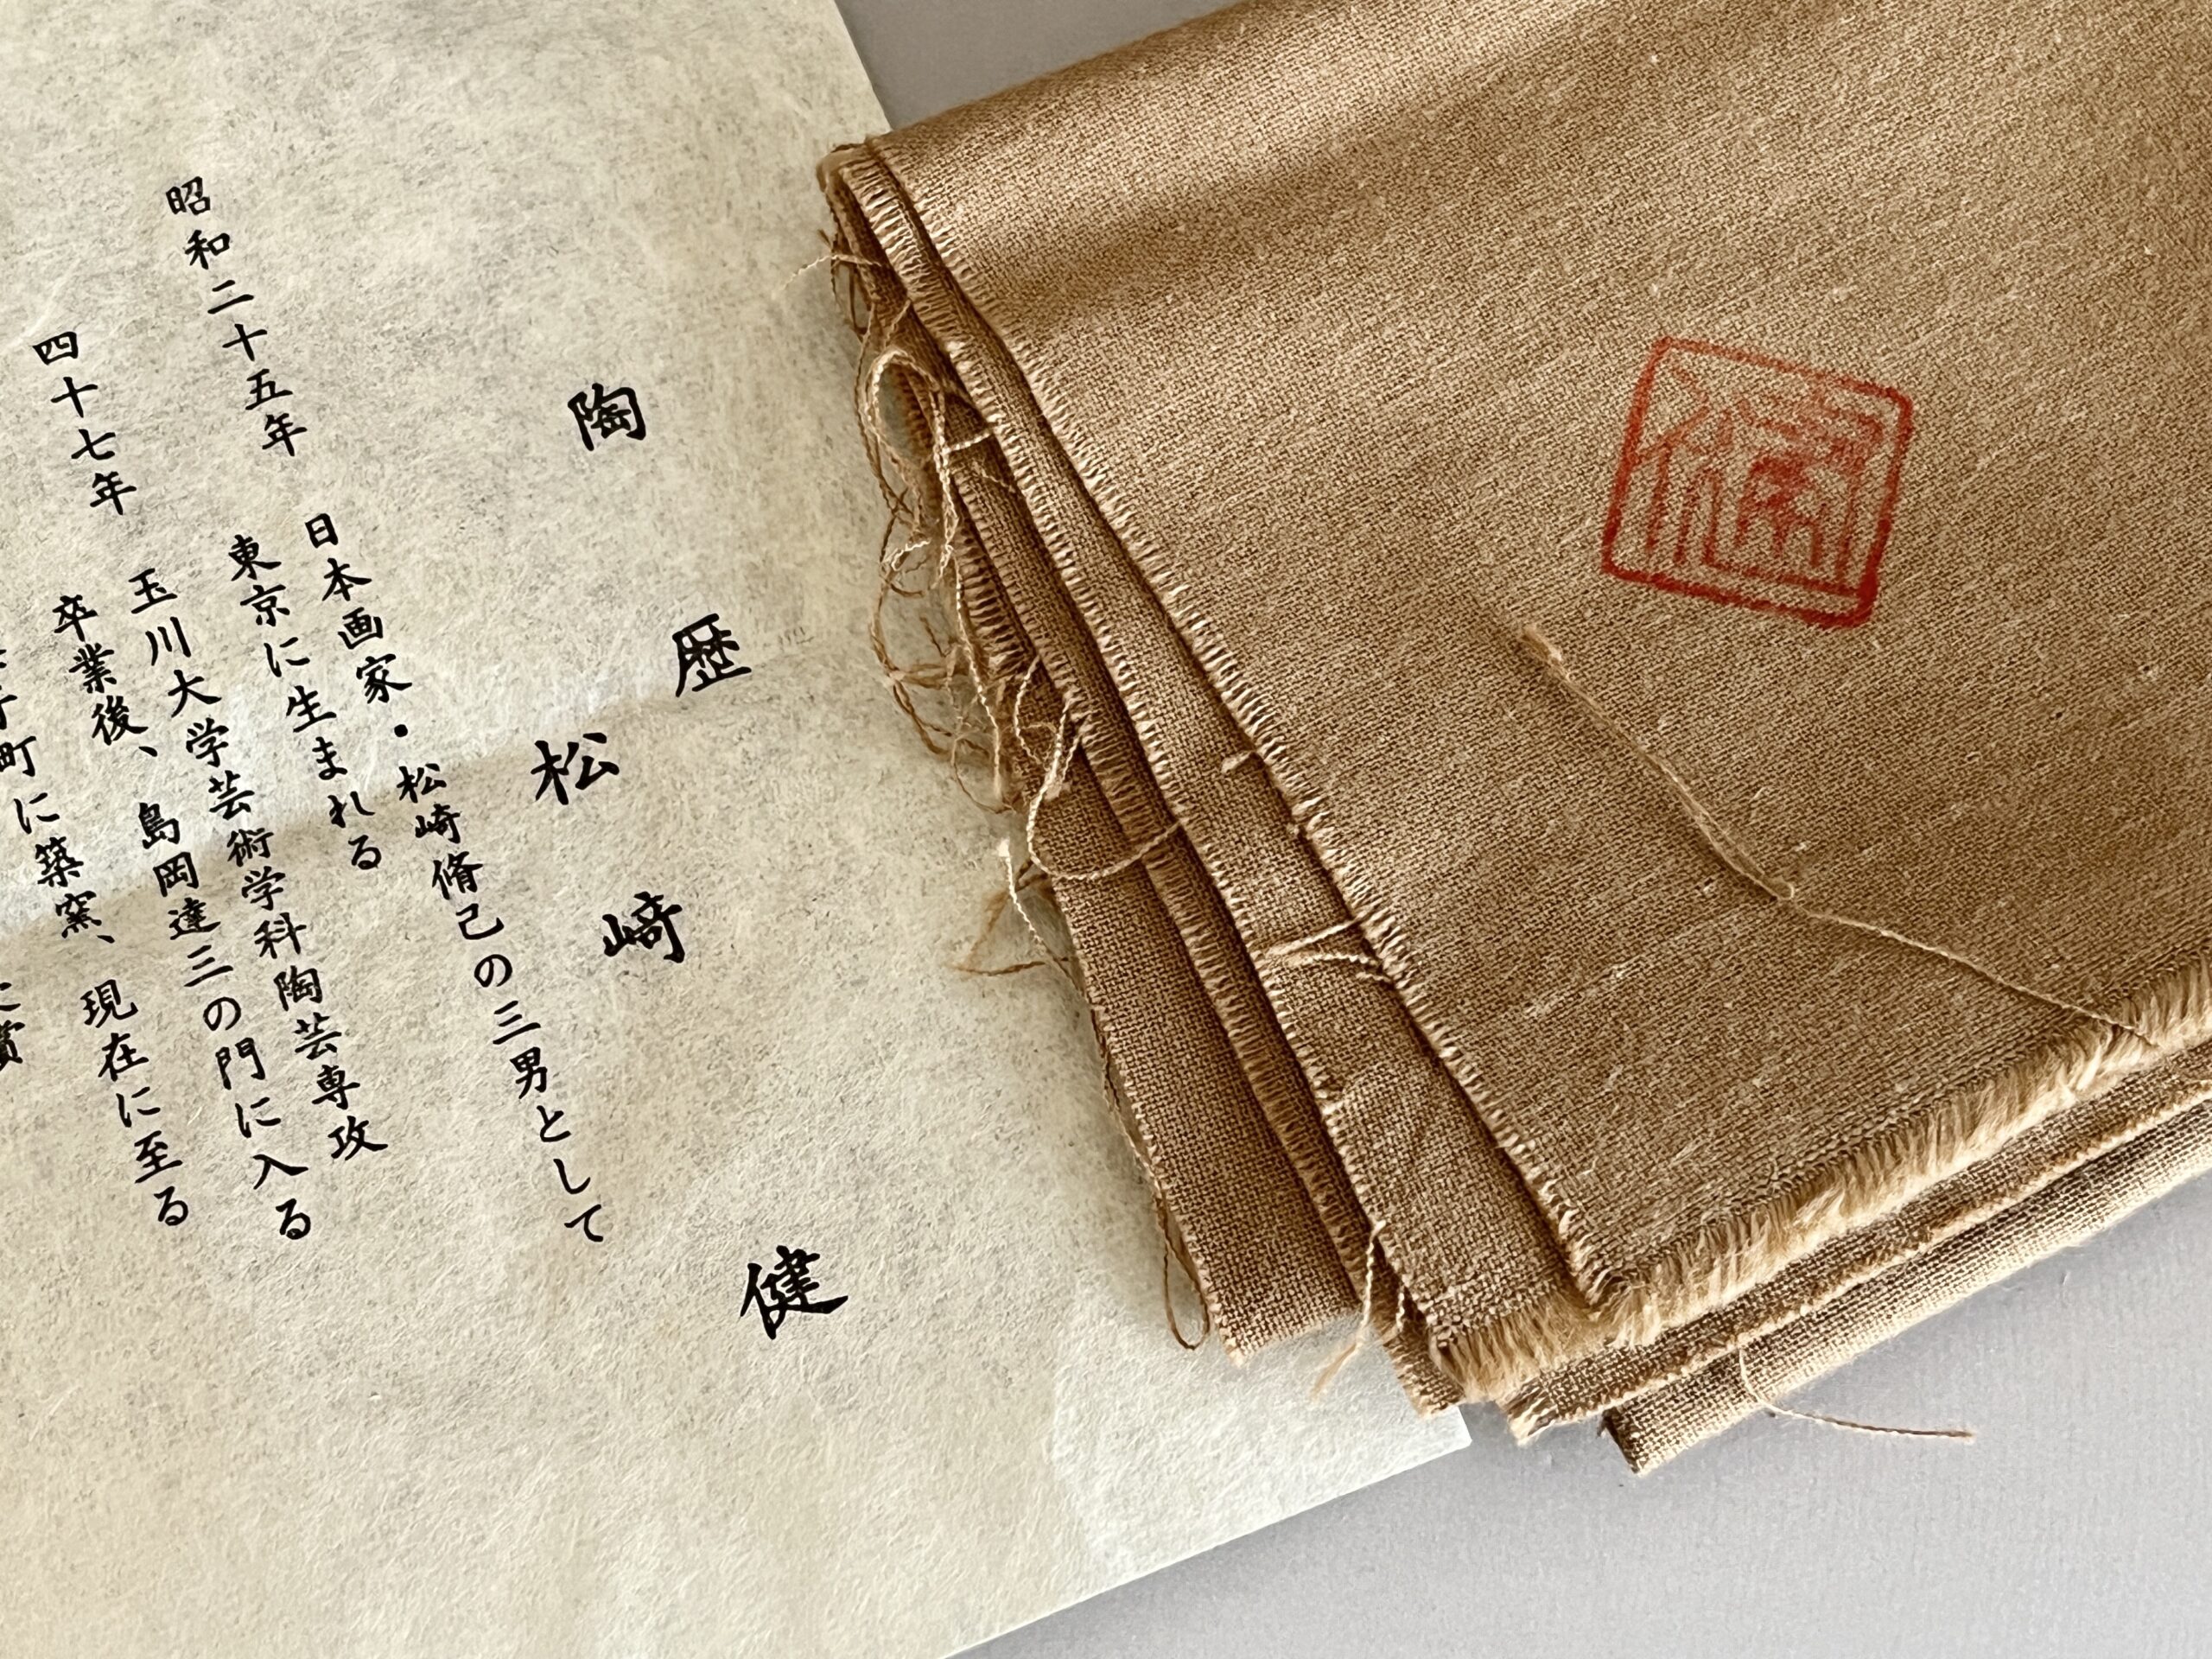 陶歴
松崎 健
昭和二十五年 日本画家・松崎脩己の三男として
東京に生まれる
四十七年 玉川大学芸術学科陶芸専攻
卒業後、島岡達三の門に入る
町に築窯、現在に至る
賞